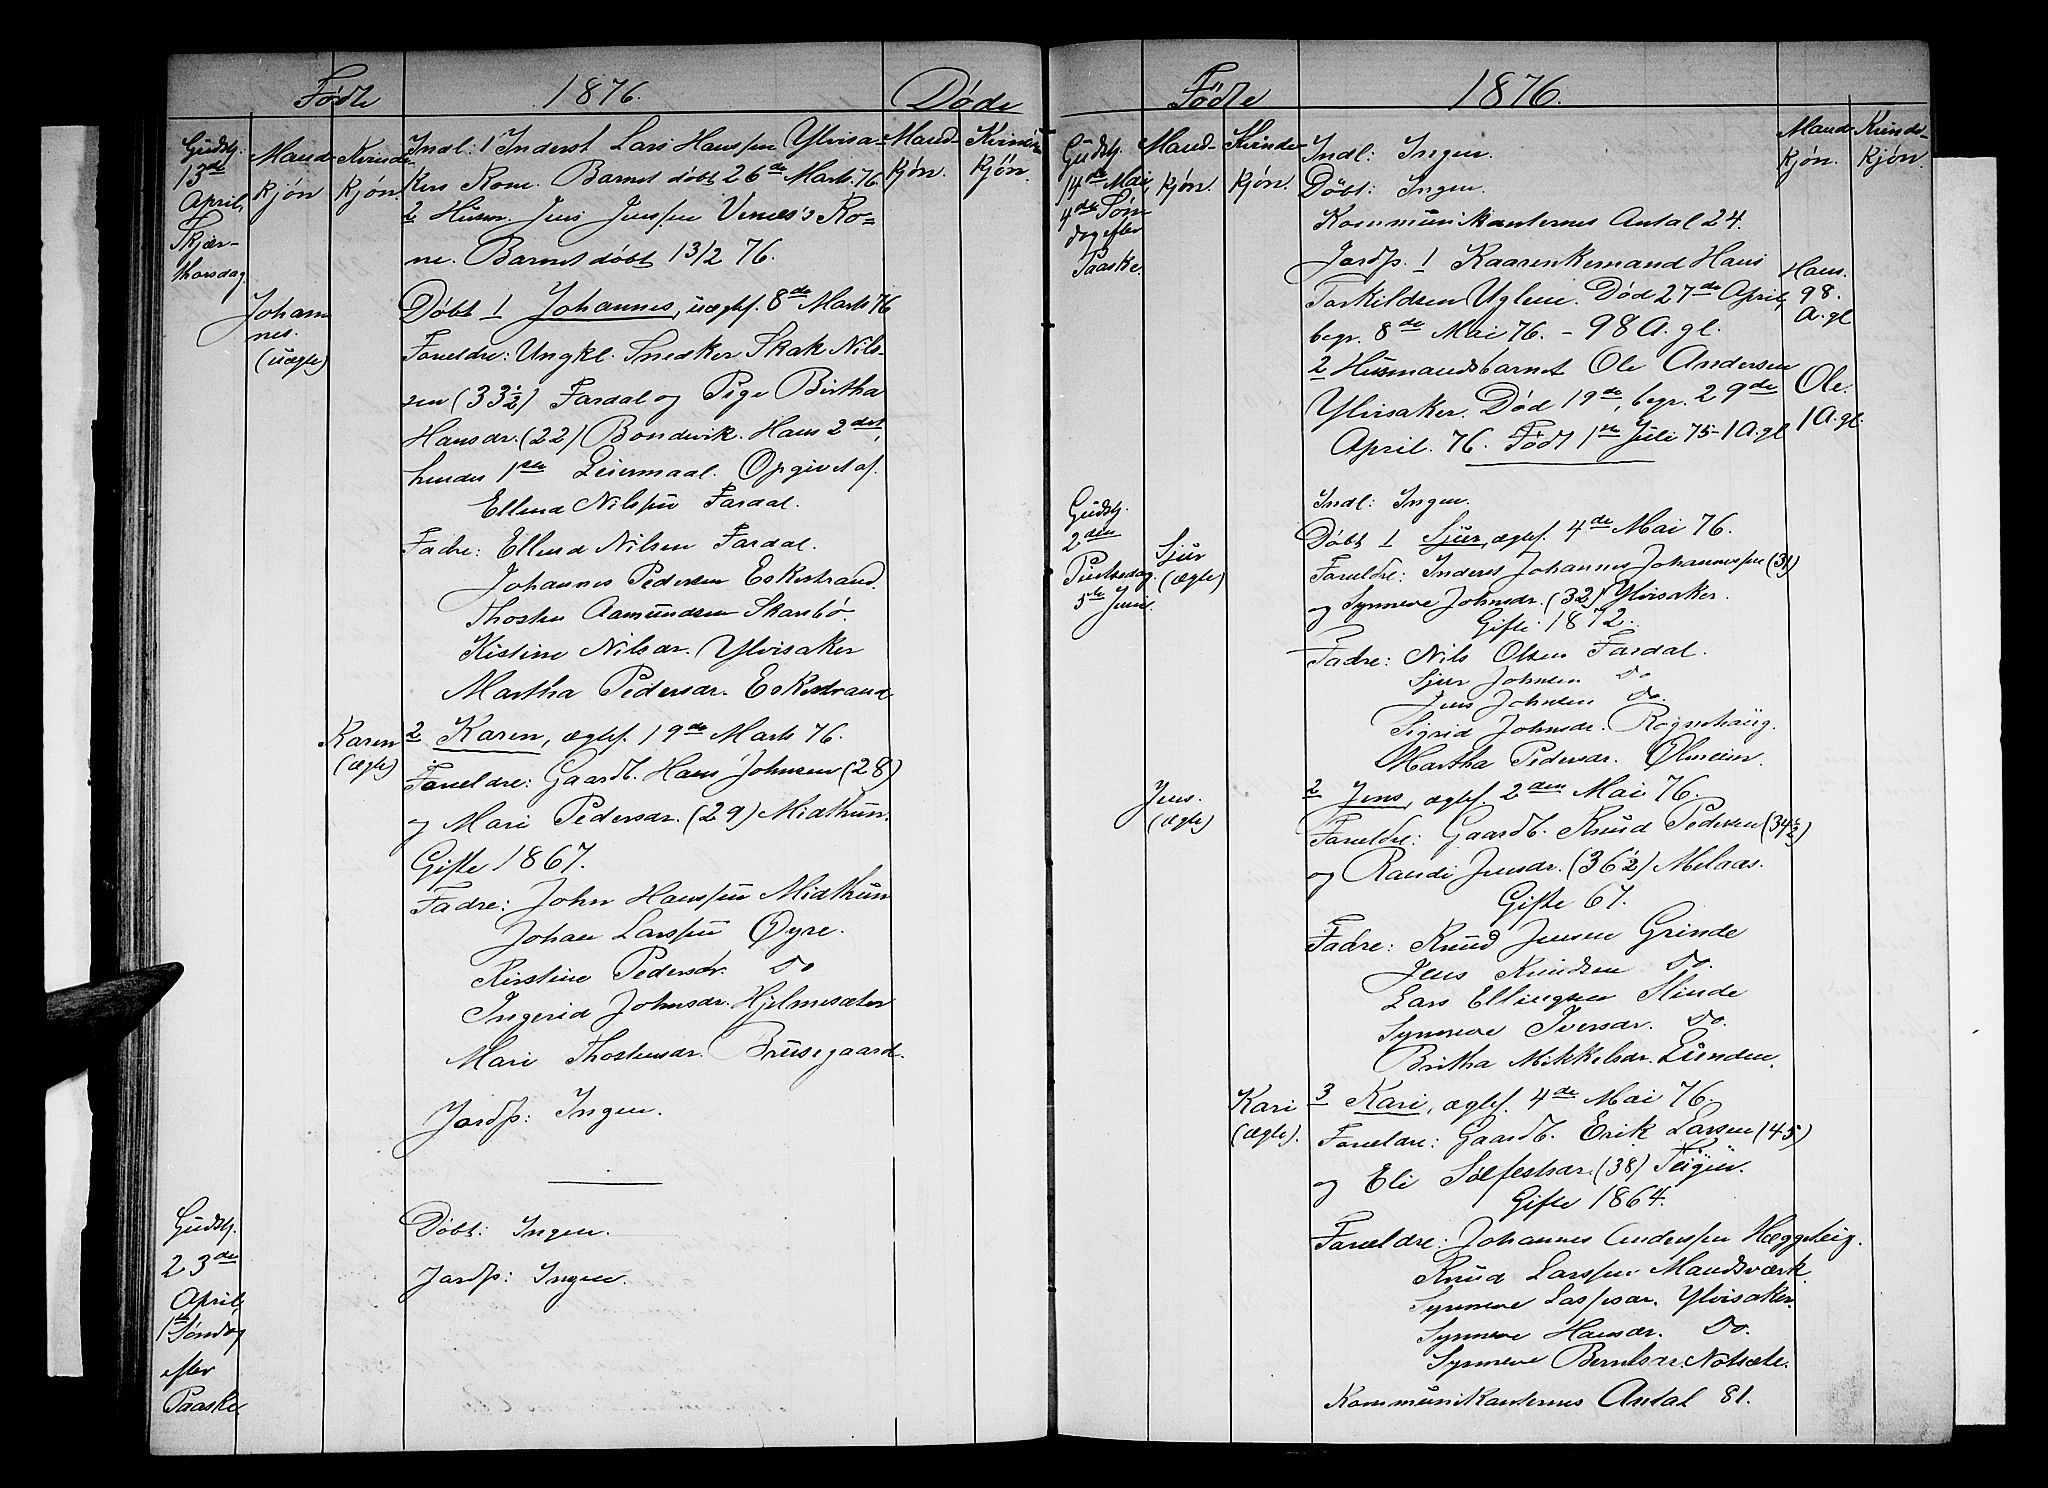 Fødte 1876. Døde
Gudstj.
13de
April,
Skjær-
thorsdag
Mand-
kjøn
Kvinde-
kjøn.
Indl: 1 Inderst Lars Hanssen Ylvisa-
kers Kone. Barnet døbt 26de Marts 76.
2 Husm. Jens Jenssen Vines's Ko-
ne. Barnet døbt 13/2 76.
Mand-
kjøn.
Kvinde-
kjøn.
Johan
nes.
(uægte)
Døbt 1 Johannes, uægtef. 8de Marts 76
Foreldre: Ungkl. Snedker Skak Nils-
sen (33½) Fardal og Pige Birtha
Hansdr. (22) Bondevik. Hans 2det,
hendes 1ste Leiermaal. Opgivet af
Ellend Nilssen Fardal.
Fadre: Ellend Nilsen Fardal.
Johannes Pedersen Eskestrand.
Thosten Aamundsen Skarsbø.
Kistine Nilsdr. Ylvisaker
Martha Pedersdr. Eskestrand
Karen
(ægte)
2 Karen, ægtef. 19de Marts 76.
Foreldre: Gaardb. Hans Johnsen (28)
og Mari Pedersdr. (29) Midthun.
Gifte 1867.
Fadre: John Hanssen Midthun
Johan Larssen Øyre.
Kirstine Pedersdr. Do
Ingerid Johnsdr. Hjelmesæter
Mari Thostensdr. Brusegaard.
Jordp: Ingen.
Gudstj.
23de
April,
1ste Søndag
efter
Paaske.
Døbt: Ingen.
Jordp: Ingen.
Fødte 1876.
Gudstj.
14de Mai,
4de Søn-
dag efter
Paaske.
Mand-
kjøn.
Kvinde-
kjøn.
Indl: Ingen.
Døbt: Ingen.
Kommunikanternes Antal 24.
Jordp. 1 Kaarenkemand Hans
Torkildsen Uglene. Død 27de April,
begr. 8de Mai 76. - 98 A. gl.
2 Husmandsbarnet Ole Andersen
Ylvisaker. Død 19de, begr. 29de
April. 76. Født 1ste Juli 75 - 1 A. gl
Mand-
kjøn.
Kvinde-
kjøn.
Hans.
98.
A. gl
Ole.
1 A. gl.
Gudstj.
2den
Pintsedag.
5te Juni.
Sjur
(ægte)
Indl: Ingen.
Døbt 1 Sjur, ægtef. 4de Mai 76.
Foreldre: Inderst Johannes Johannessen (31)
og Synneve Johnsdr. (32) Ylvisaker.
Gifte 1872.
Fadre: Nils Olsen Fardal.
Sjur Johnsen Do
Jens Johnsen Do.
Sigrid Johnsdr. Rognehaug.
Martha Pedersdr. Ølmeim.
Jens.
(ægte)
2 Jens, ægtef. 2den Mai 76.
Foreldre: Gaardb. Knud Pedersen (34½)
og Randi Jensdr. (36½) Melaas.
Gifte 67.
Fadre: Knud Jensen Grinde
Jens Knudsen Do.
Lars Ellingsen Slinde
Synneve Iversdr. Do.
Britha Mikkelsdr. Lunden.
Kari
(ægte).
3 Kari, ægtef. 4de Mai 76.
Foreldre: Gaardb. Erik Larsen (45)
og Eli Sølfestsdr. (38) Teigen.
Gifte 1864.
Foreldre: Johannes Anderssen Hæggeteig.
Knud Larssen Mandsværk
Synneve Lassesdr. Ylvisaker.
Synneve Hansdr. Do.
Synneve Berntsdr. Notsete.
Kommunikanternes Antal 81.